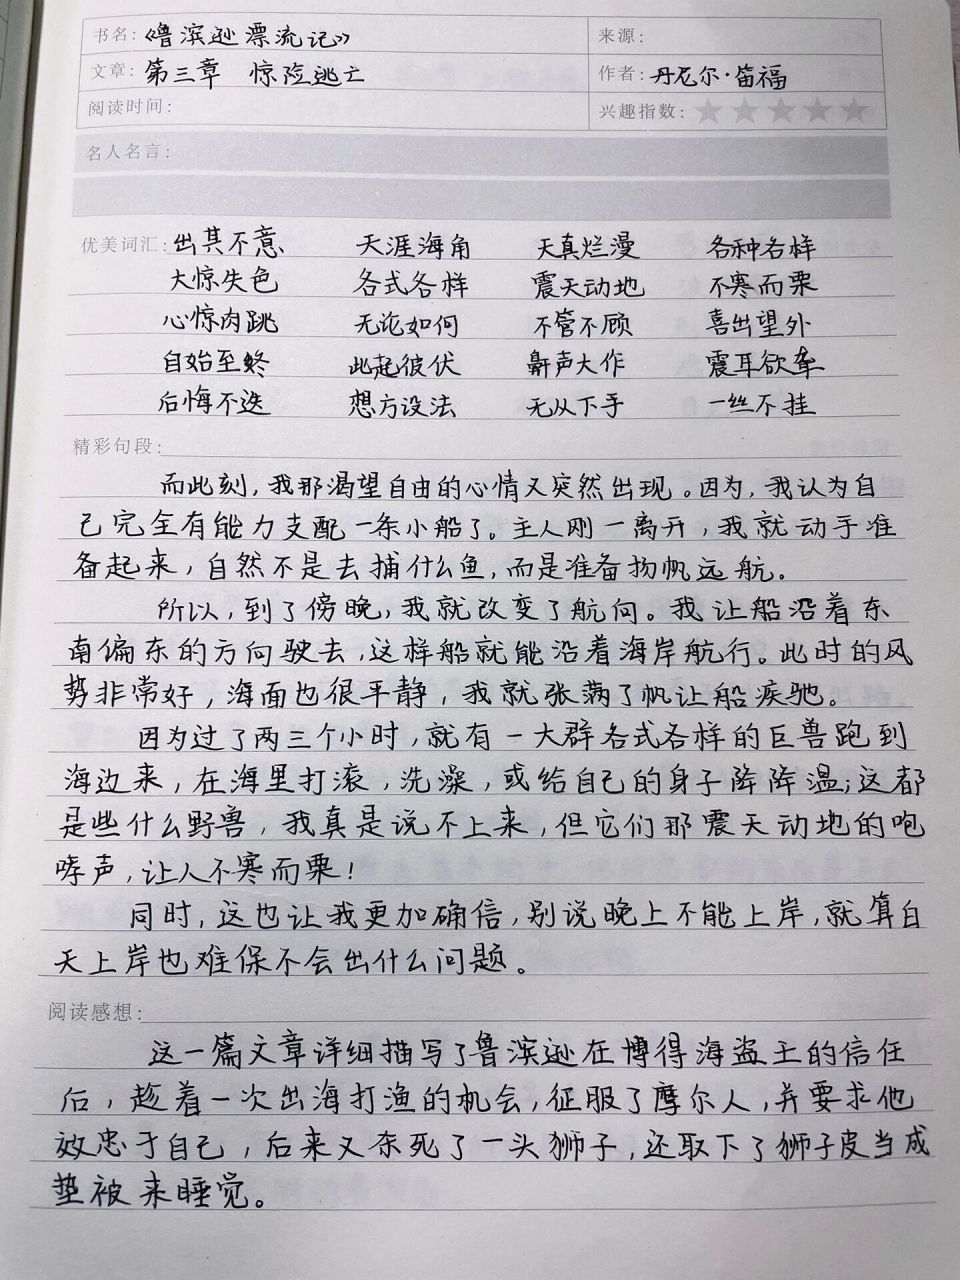 书名:《鲁滨逊漂流记》 来源:
文章:第三章 惊险逃亡 作者:丹尼尔·笛福
阅读时间: 兴趣指数:
名人名言:
优美词汇:出其不意、 天涯海角 天真烂漫 各种各样
大惊失色 各式各样 震天动地 不寒而栗
心惊肉跳 无论如何 不管不顾 喜出望外
自始至终 此起彼伏 鼾声大作 震耳欲聋
后悔不迭 想方设法 无从下手 一丝不挂
精彩句段:
而此刻,我那渴望自由的心情又突然出现。因为,我认为自
己完全有能力支配一条小船了。主人刚一离开,我就动手准
备起来,自然不是去捕什么鱼,而是准备扬帆远航。
所以,到了傍晚,我就改变了航向。我让船沿着东
南偏东的方向驶去,这样船就能沿着海岸航行。此时的风
势非常好,海面也很平静,我就张满了帆让船疾驰。
因为过了两三个小时,就有一大群各式各样的巨兽跑到
海边来,在海里打滚,洗澡,或给自己的身子降降温;这都
是些什么野兽,我真是说不上来,但它们那震天动地的咆
哮声,让人不寒而栗!
同时,这也让我更加确信,别说晚上不能上岸,就算白
天上岸也难保不会出什么问题。
阅读感想:
这一篇文章详细描写了鲁滨逊在博得海盗王的信任
后,趁着一次出海打渔的机会,征服了摩尔人,并要求他
效忠于自己,后来又杀死了一头狮子,还取下了狮子皮当成
垫被来睡觉。